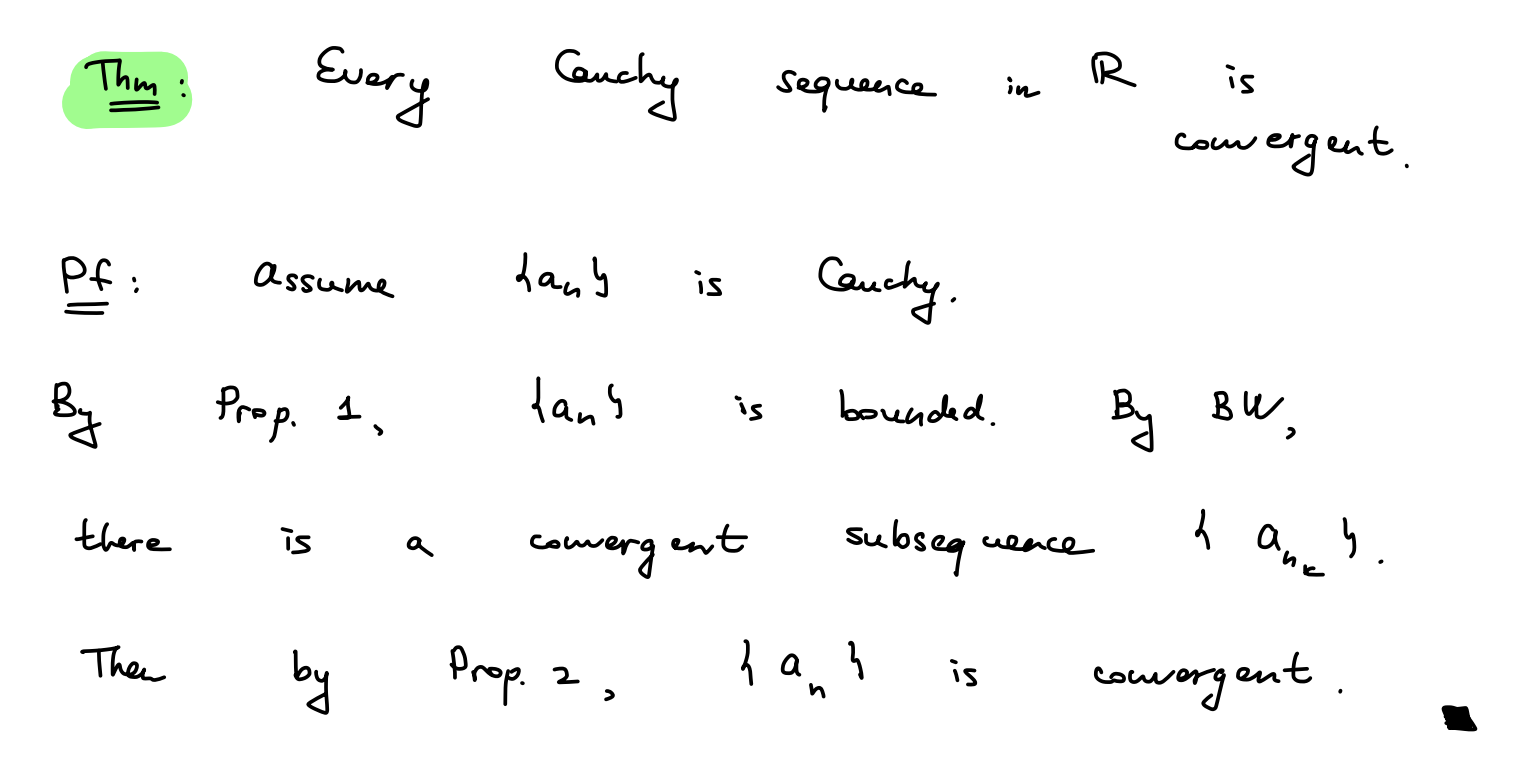 Thm: Every Cauchy sequence in ℝ is
convergent.
Pf: Assume {aₙ} is Cauchy.
By Prop. 1, {aₙ} is bounded. By BW,
there is a convergent subsequence {aₙₖ}.
Then by Prop. 2, {aₙ} is convergent. ■